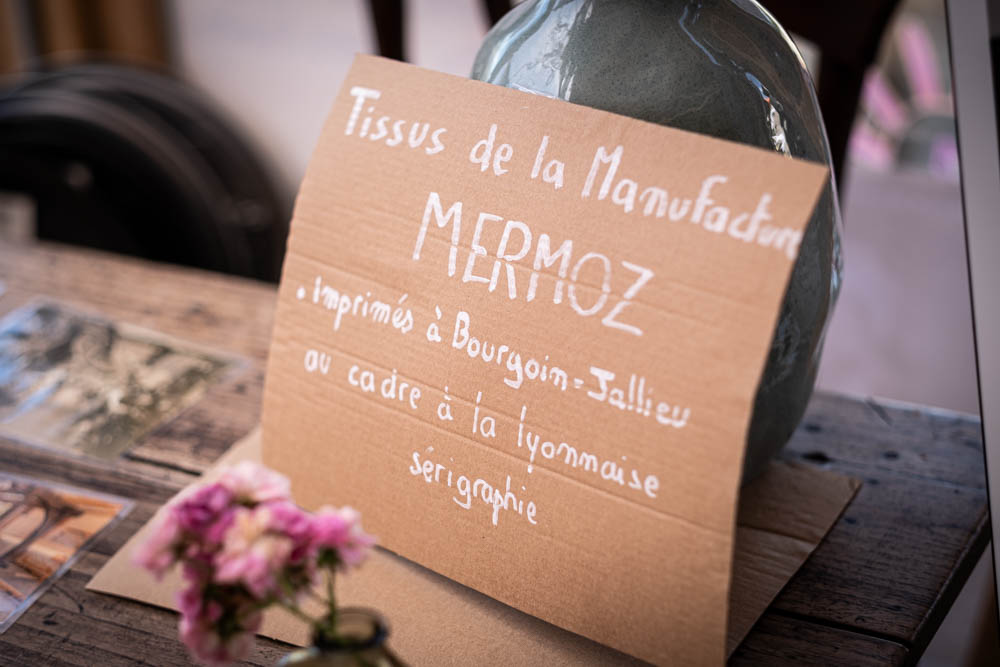 Tissus de la Manufacture
MERMOZ
. imprimés à Bourgoin=Jallieu
au cadre à la lyonnaise
sérigraphie